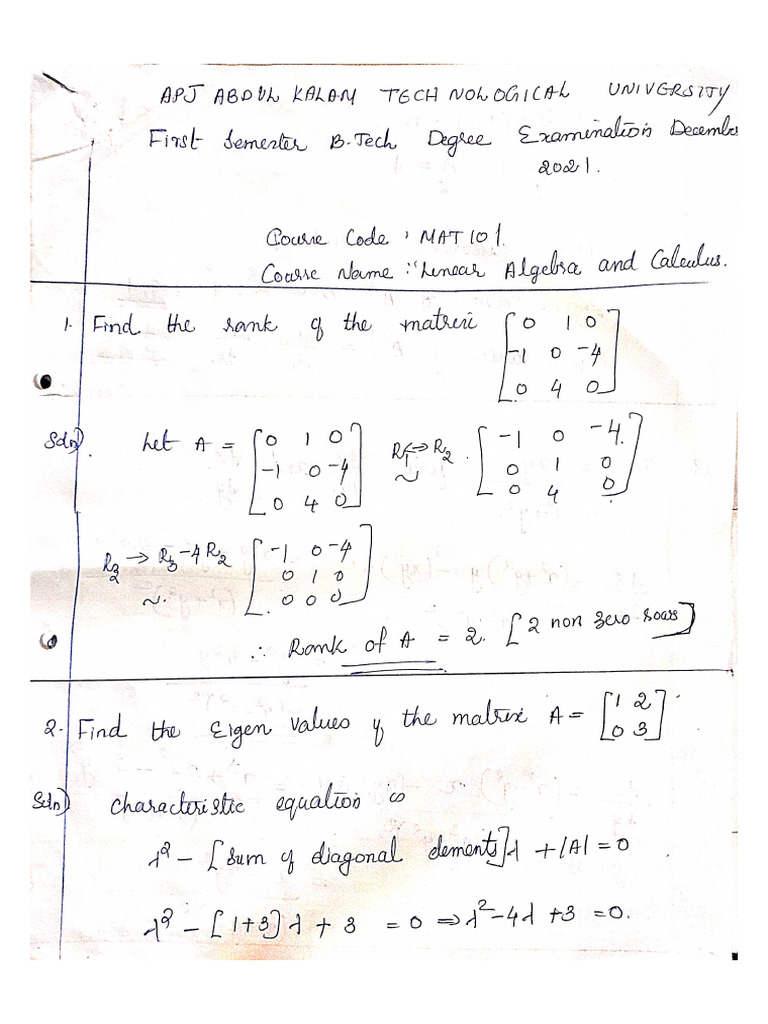 APJ ABDUL KALAM TECHNOLOGICAL UNIVERSITY
First Semester B.Tech Degree Examination December
2021.
Course Code : MAT 101.
Course Name : Linear Algebra and Calculus.
1. Find the rank of the matrix [0 1 0
-1 0 -4
0 4 0]
Soln). Let A = [0 1 0
-1 0 -4
0 4 0] R1↔R2 ~ [-1 0 -4
0 1 0
0 4 0]
R3 → R3-4R2 ~ [-1 0 -4
0 1 0
0 0 0]
∴ Rank of A = 2. [2 non zero rows]
2. Find the Eigen values of the matrix A = [1 2
0 3].
Soln) characteristic equation is
λ² - [Sum of diagonal elements]λ + |A| = 0
λ² - [1+3] λ + 3 = 0 ⇒ λ² - 4λ + 3 = 0.